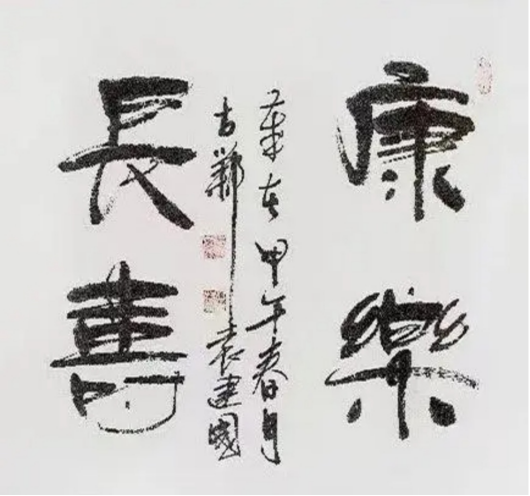 康樂
長壽
歲在甲午春月
古鄴袁建國